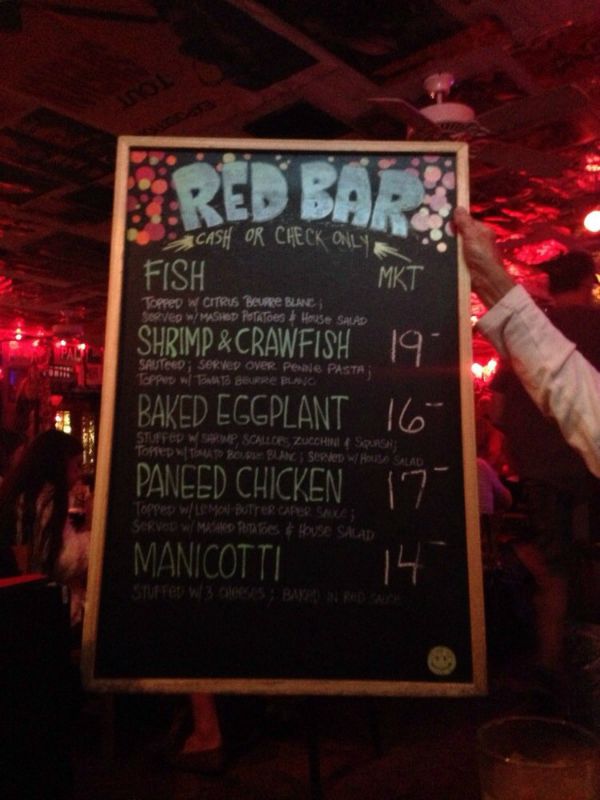 RED BAR
CASH OR CHECK ONLY
FISH MKT
TOPPED W/ CITRUS BEURRE BLANC;
SERVED W/ MASHED POTATOES & HOUSE SALAD
SHRIMP & CRAWFISH 19-
SAUTEED; SERVED OVER PENNE PASTA;
TOPPED W/ TOMATO BEURRE BLANC
BAKED EGGPLANT 16-
STUFFED W/ SHRIMP, SCALLOPS, ZUCCHINI & SQUASH;
TOPPED W/ TOMATO BEURRE BLANC; SERVED W/ HOUSE SALAD
PANEED CHICKEN 17-
TOPPED W/ LEMON-BUTTER CAPER SAUCE;
SERVED W/ MASHED POTATOES & HOUSE SALAD
MANICOTTI 14-
STUFFED W/ 3 CHEESES; BAKED IN RED SAUCE